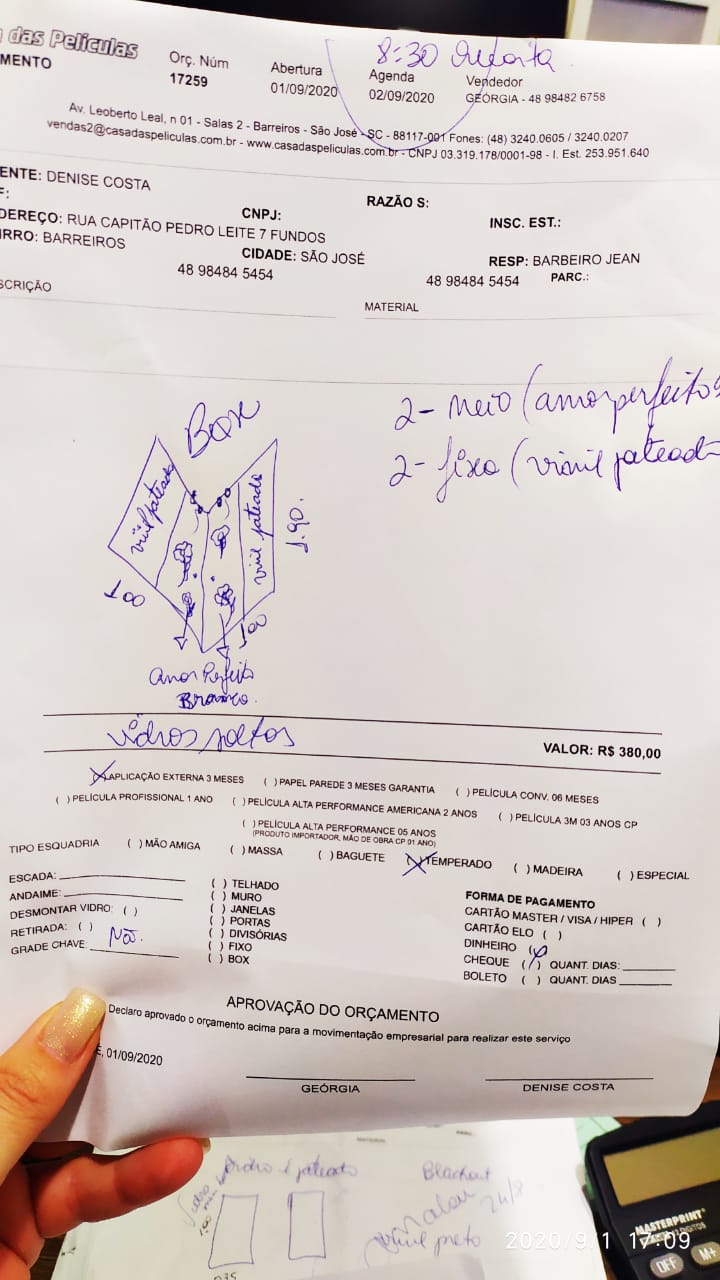 das Películas
MENTO
Orç. Núm
17259
Abertura
01/09/2020
8:30
Agenda
02/09/2020
Vendedor
GEÓRGIA - 48 98482 6758
Av. Leoberto Leal, n 01 - Salas 2 - Barreiros - São José - SC - 88117-001 Fones: (48) 3240.0605 / 3240.0207
vendas2@casadaspeliculas.com.br - www.casadaspeliculas.com.br - CNPJ 03.319.178/0001-98 - I. Est. 253.951.640
ENTE: DENISE COSTA
F:
CNPJ:
RAZÃO S:
INSC. EST.:
DEREÇO: RUA CAPITÃO PEDRO LEITE 7 FUNDOS
IRRO: BARREIROS
CIDADE: SÃO JOSÉ
RESP: BARBEIRO JEAN
48 98484 5454
48 98484 5454
PARC.:
SCRIÇÃO
MATERIAL
2- meio (amor perfeito
2- fixo (vinil jatead
Box
vinil jateado
vinil jateado
1.90
1.00
1.00
Amor Perfeito
Branco.
vidros soltos
VALOR: R$ 380,00
(X) APLICAÇÃO EXTERNA 3 MESES ( ) PAPEL PAREDE 3 MESES GARANTIA ( ) PELÍCULA CONV. 06 MESES
( ) PELÍCULA PROFISSIONAL 1 ANO ( ) PELÍCULA ALTA PERFORMANCE AMERICANA 2 ANOS ( ) PELÍCULA 3M 03 ANOS CP
( ) PELÍCULA ALTA PERFORMANCE 05 ANOS
(PRODUTO IMPORTADOR, MÃO DE OBRA CP 01 ANO)
TIPO ESQUADRIA ( ) MÃO AMIGA ( ) MASSA ( ) BAGUETE (X) TEMPERADO ( ) MADEIRA ( ) ESPECIAL
ESCADA:
ANDAIME:
DESMONTAR VIDRO: ( )
RETIRADA: ( )
GRADE CHAVE: Não.
( ) TELHADO
( ) MURO
( ) JANELAS
( ) PORTAS
( ) DIVISÓRIAS
( ) FIXO
( ) BOX
FORMA DE PAGAMENTO
CARTÃO MASTER / VISA / HIPER ( )
CARTÃO ELO ( )
DINHEIRO ( )
CHEQUE ( ) QUANT. DIAS:
BOLETO ( ) QUANT. DIAS
APROVAÇÃO DO ORÇAMENTO
Declaro aprovado o orçamento acima para a movimentação empresarial para realizar este serviço
É, 01/09/2020
GEÓRGIA
DENISE COSTA
jateado
Blackout
24/8
vinil preto
MASTERPRINT
DIGITOS
OFF
M+
2020/9/1 17:09